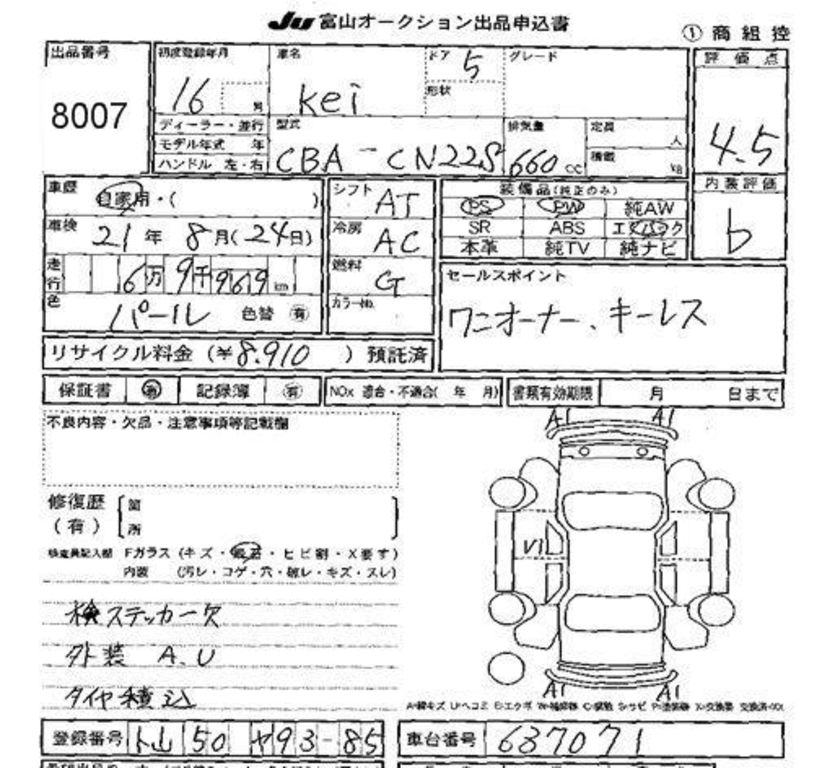 JU 富山オークション出品申込書
① 商 組 控
出品番号 8007
初度登録年月 16 月
車名 kei
ドア 5
形状
グレード
評価点 4.5
ディーラー・並行
モデル年式 年
ハンドル 左・右
型式 CBA-CN22S
排気量 660 cc
定員 人
積載 kg
内装評価 b
車歴 自家用・( )
車検 21年 8月(24日)
走行 6万9千969km
色 パール 色替 有
シフト AT
冷房 AC
燃料 G
カラーNo.
装備品(純正のみ)
PS PW 純AW
SR ABS エアバック
本革 純TV 純ナビ
セールスポイント
ワンオーナー、キーレス
リサイクル料金 (¥8.910 ) 預託済
保証書 有 記録簿 有 NOx 適合・不適合( 年 月) 書類有効期限 月 日まで
不良内容・欠品・注意事項等記載欄
修復歴 (有) 箇所
検査員記入欄 Fガラス (キズ・飛石・ヒビ割・X要す)
内装 (汚レ・コゲ・穴・破レ・キズ・スレ)
検ステッカー欠
外装 A.U
タイヤ積込
A1 A1
V1
A1 A1
登録番号 ト山 50 ヤ93-85
車台番号 637071